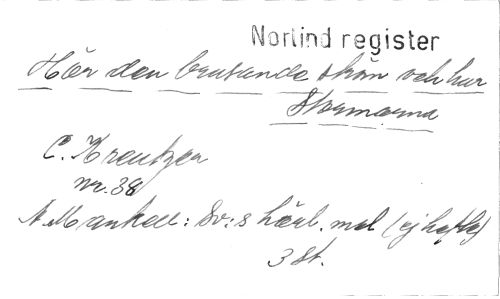 Nortind register
Hör den brusande skön och hur
Stormarna
C. Kreutzer
nr. 38
A Mankell: Sv: s härl. mel (ej häfte)
3 st.